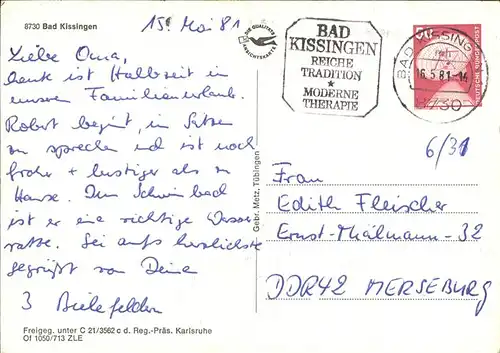 8730 Bad Kissingen
15. Mai 81
Liebe Oma,
heute ist Halbzeit in
unserem Familienurlaub.
Robert beginnt, in Sätzen
zu sprechen und ist noch
froher + lustiger als zu
Hause. Im Schwimmbad
ist er eine richtige Wasser
ratte. Sei aufs herzlichste
gegrüßt von Deinen
3 Bielefeldern
Freigeg. unter C 21/3562 c d. Reg.-Präs. Karlsruhe
Of 1050/713 ZLE
Gebr. Metz, Tübingen
BAD
KISSINGEN
REICHE
TRADITION
★
MODERNE
THERAPIE
BAD KISSINGEN
16.5.81-14
8730
DEUTSCHE BUNDESPOST
6/31
Frau
Edith Fleischer
Ernst-Thälmann-32
DDR 42 MERSEBURG